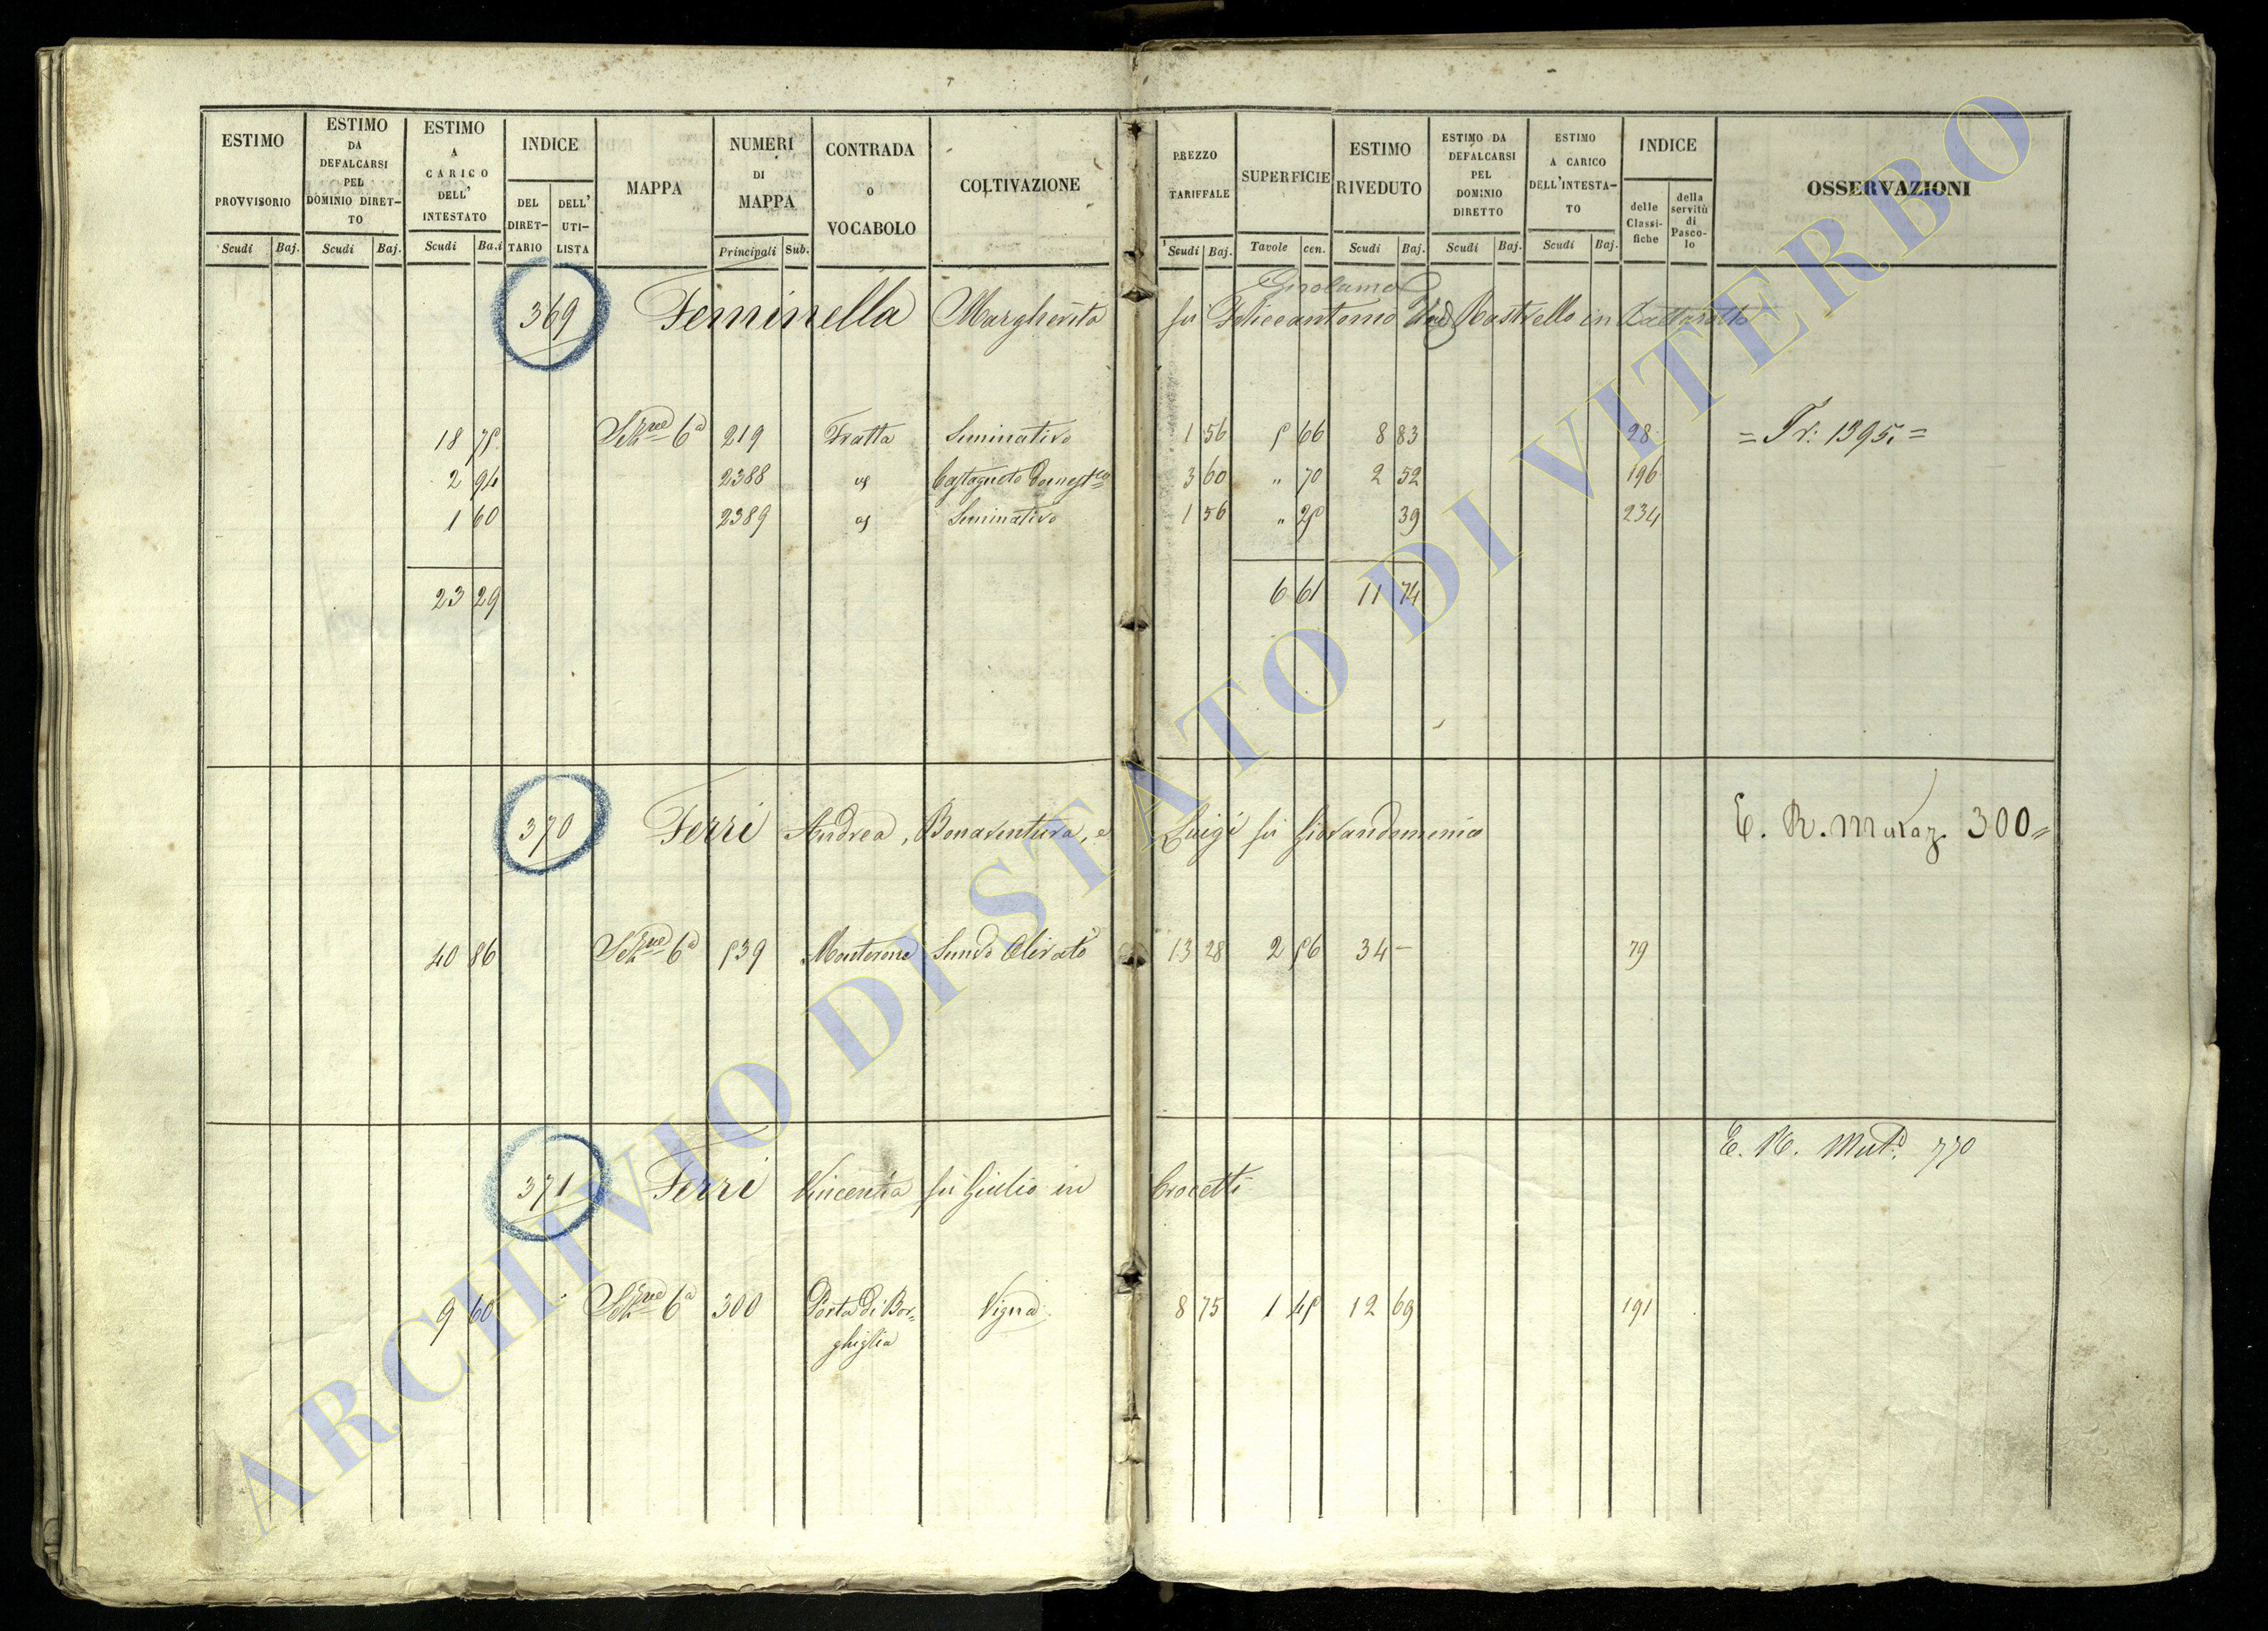 ESTIMO PROVVISORIO
Scudi Baj.
ESTIMO DA DEFALCARSI PEL DOMINIO DIRET-TO
Scudi Baj.
ESTIMO A CARICO DELL' INTESTATO
Scudi Baj
INDICE
DEL DIRET-TARIO
DELL' UTI-LISTA
MAPPA
NUMERI DI MAPPA
Principali Sub.
CONTRADA o VOCABOLO
COLTIVAZIONE
PREZZO TARIFFALE
Scudi Baj.
SUPERFICIE
Tavole cen.
ESTIMO RIVEDUTO
Scudi Baj.
ESTIMO DA DEFALCARSI PEL DOMINIO DIRETTO
Scudi Baj.
ESTIMO A CARICO DELL'INTESTA-TO
Scudi Baj.
INDICE
delle Classi-fiche
della servitù di Pasco-lo
OSSERVAZIONI
Girolamo
369 Feminella Margherita fu Feliceantonio Rastrello in
18 75 Sez.ne 6a 219 Fratta Seminativo 1 56 5 66 8 83 28 = Tr: 1395. =
2 94 2388 Castagneto Domest.co 3 60 " 70 2 52 196
1 60 2389 Seminativo 1 56 " 25 39 234
23 29 6 61 11 74
370 Ferri Andrea, Bonaventura, e Luigi fu Giovandomenico E. R. 300=
40 86 Sez.ne 6a 539 Monterone Semvo Olivato 13 28 2 56 34 – 79
E. R. Mut. 770
371 Ferri Vincenza fu Giulio in Crocetti
9 60 Sez.ne 6a 300 Porta di Bor=
ghiglia
Vigna 8 75 1 45 12 69 191
ARCHIVIO DI STATO DI VITERBO